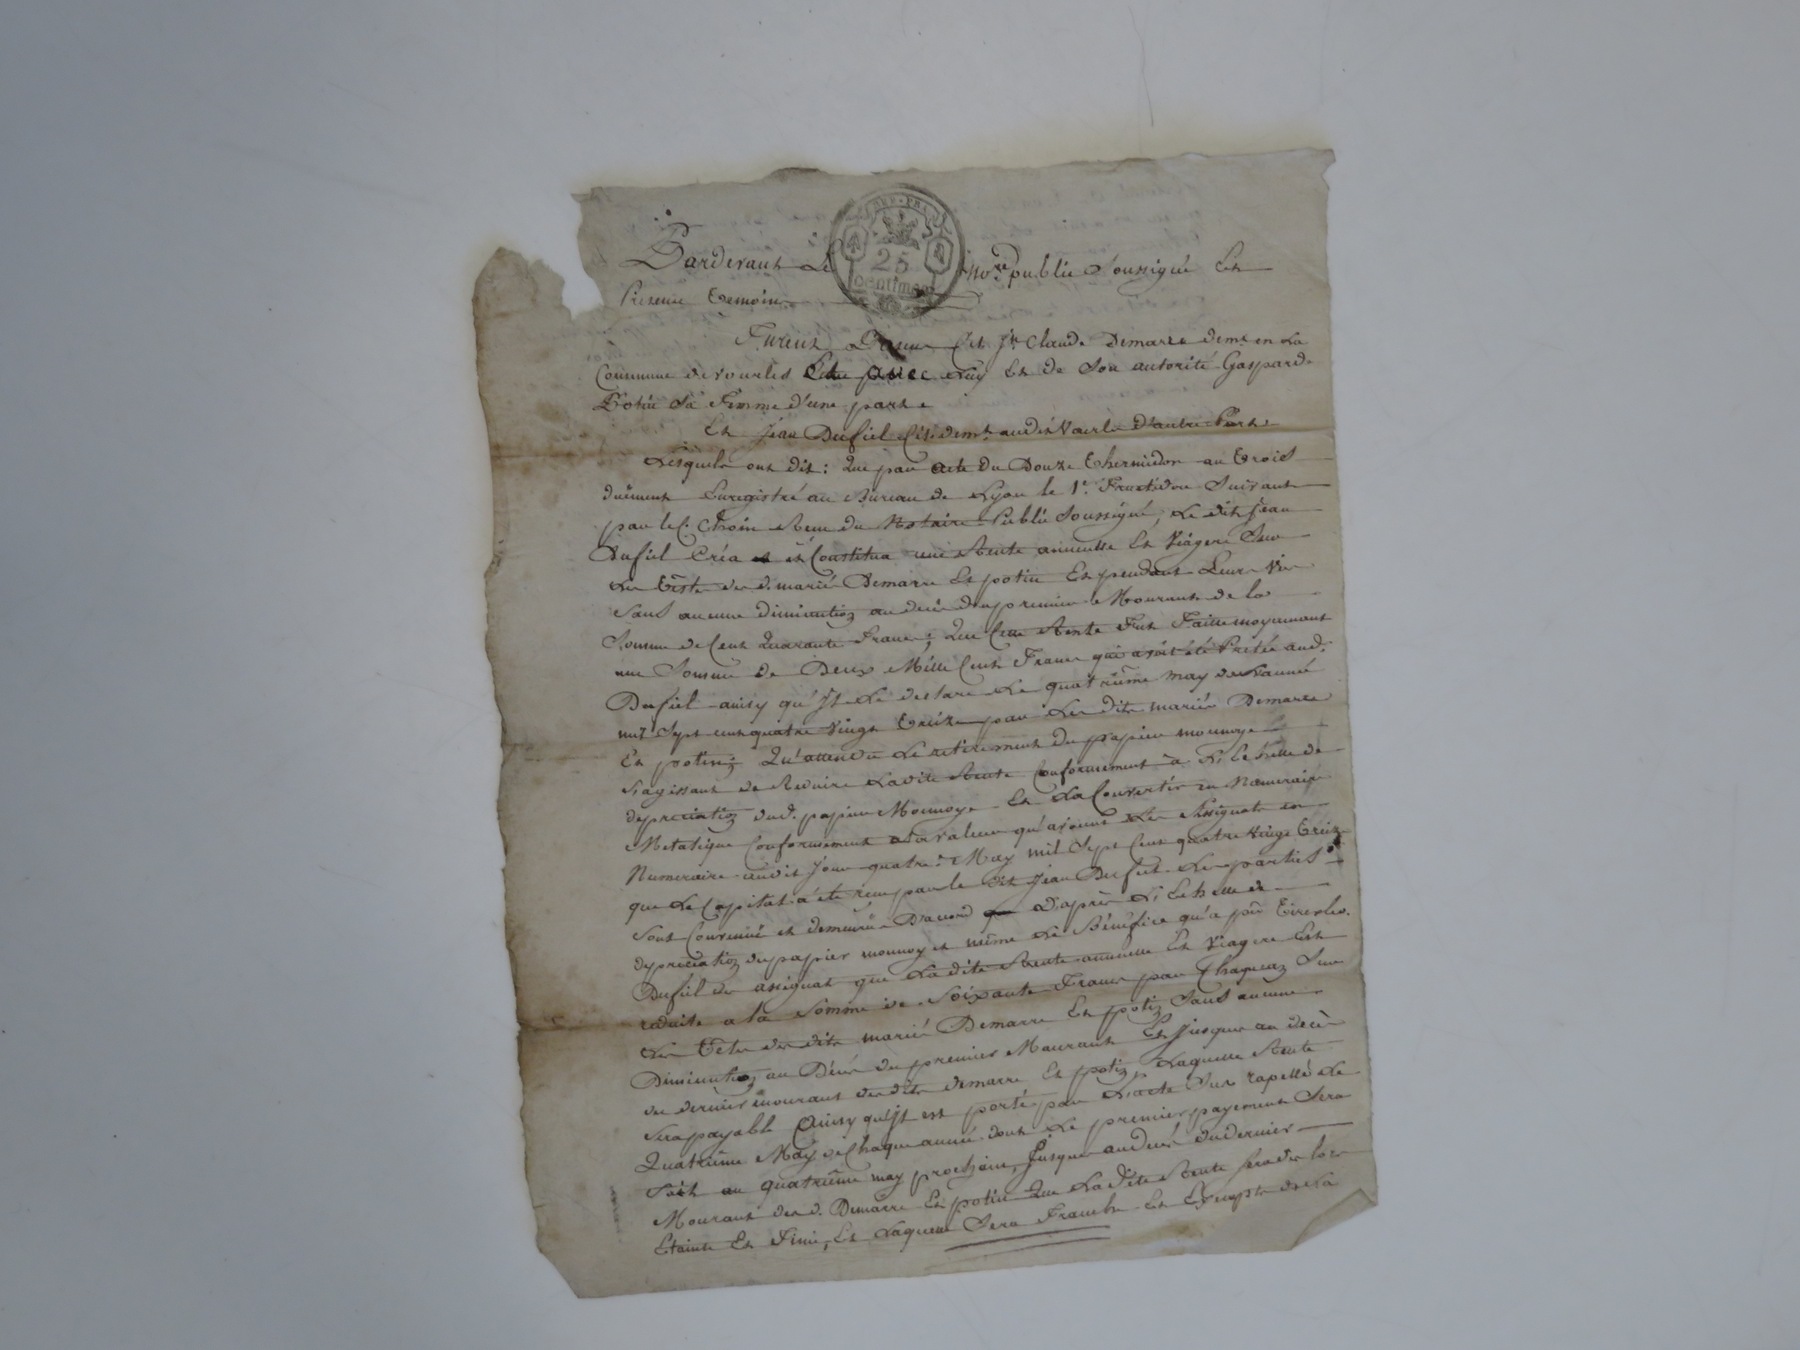 REP. FRA.
25
centimes
Pardevant Le no.re public Soussigné En
Presence temoins
Furent Cit. Claude Demarre dem.t en La
Commune de vourles avec Luy Et de Son autorité Gaspard
Potin Sa Femme d'une part
Et Jean Dufiel Cit. dem.t audit Vourles d'autre Part
Lesquels ont dit : Que par acte du Douze thermidor an trois
duement Enregistré au Bureau de Lyon le 1.er Fructidor Suivant
par le C. Choin Reçu du Notaire Public Soussigné, Le dit Jean
Dufiel Créa et Constitua une Rente annuelle Et Viagere Sur
Les têtes des d. mariés Demarre Et potin Et pendant Leurs Vies
Sans aucune diminution au decès du premier Mourant de la
Somme de Cent Quarante Francs, Que Cette Rente Fut Faitte moyennant
une Somme de Deux Mille Cent Francs qui avoit été Pretée aud.
Dufiel ainsy qu'Jl Le declare Le quatrième may de L'année
mil Sept cent quatre vingt treize par Les dits mariés Demarre
Et potin; Qu'attendu Le retirement du papier monnoye
S'agissant de Reduire Ladite Rente Conformement à L'Echelle de
depreciation dud. papier Monnoye Et La Convertir en Numeraire
Metalique Conformement à La valeur qu'avoient Les Assignats en
Numeraire audit Jour quatre May mil Sept Cent quatre Vingt treize
que Le Capital a été reçu par le dit Jean Dufiel Les parties
Sont Convenues et demeurées D'accord D'après L'Echelle de
depreciation du papier monnoye et même Le Bénéfice qu'a pû tirer led.
Dufiel des assignat que Ladite Rente annuelle Et Viagere Est
reduite a la Somme de Soixante Francs par Chaque an Sur
Les têtes des dits mariés Demarre Et potin Sans aucune
Diminution au Décès du premier Mourant Et Jusques au decès
du dernier mourant desdits demarre Et potin, Laquelle Rente
Sera payable Ainsy qu'Jl est porté par L'acte Sus rapellé Le
Quatrième May de Chaque année dont Le premier payement Sera
Fait au quatrième may prochain, Jusques au decès du dernier
Mourant des d. Demarre Et potin Que Ladite Rente Sera des lors
Etainte Et Finie, Et Laquelle Sera Franche Et Exempte de la